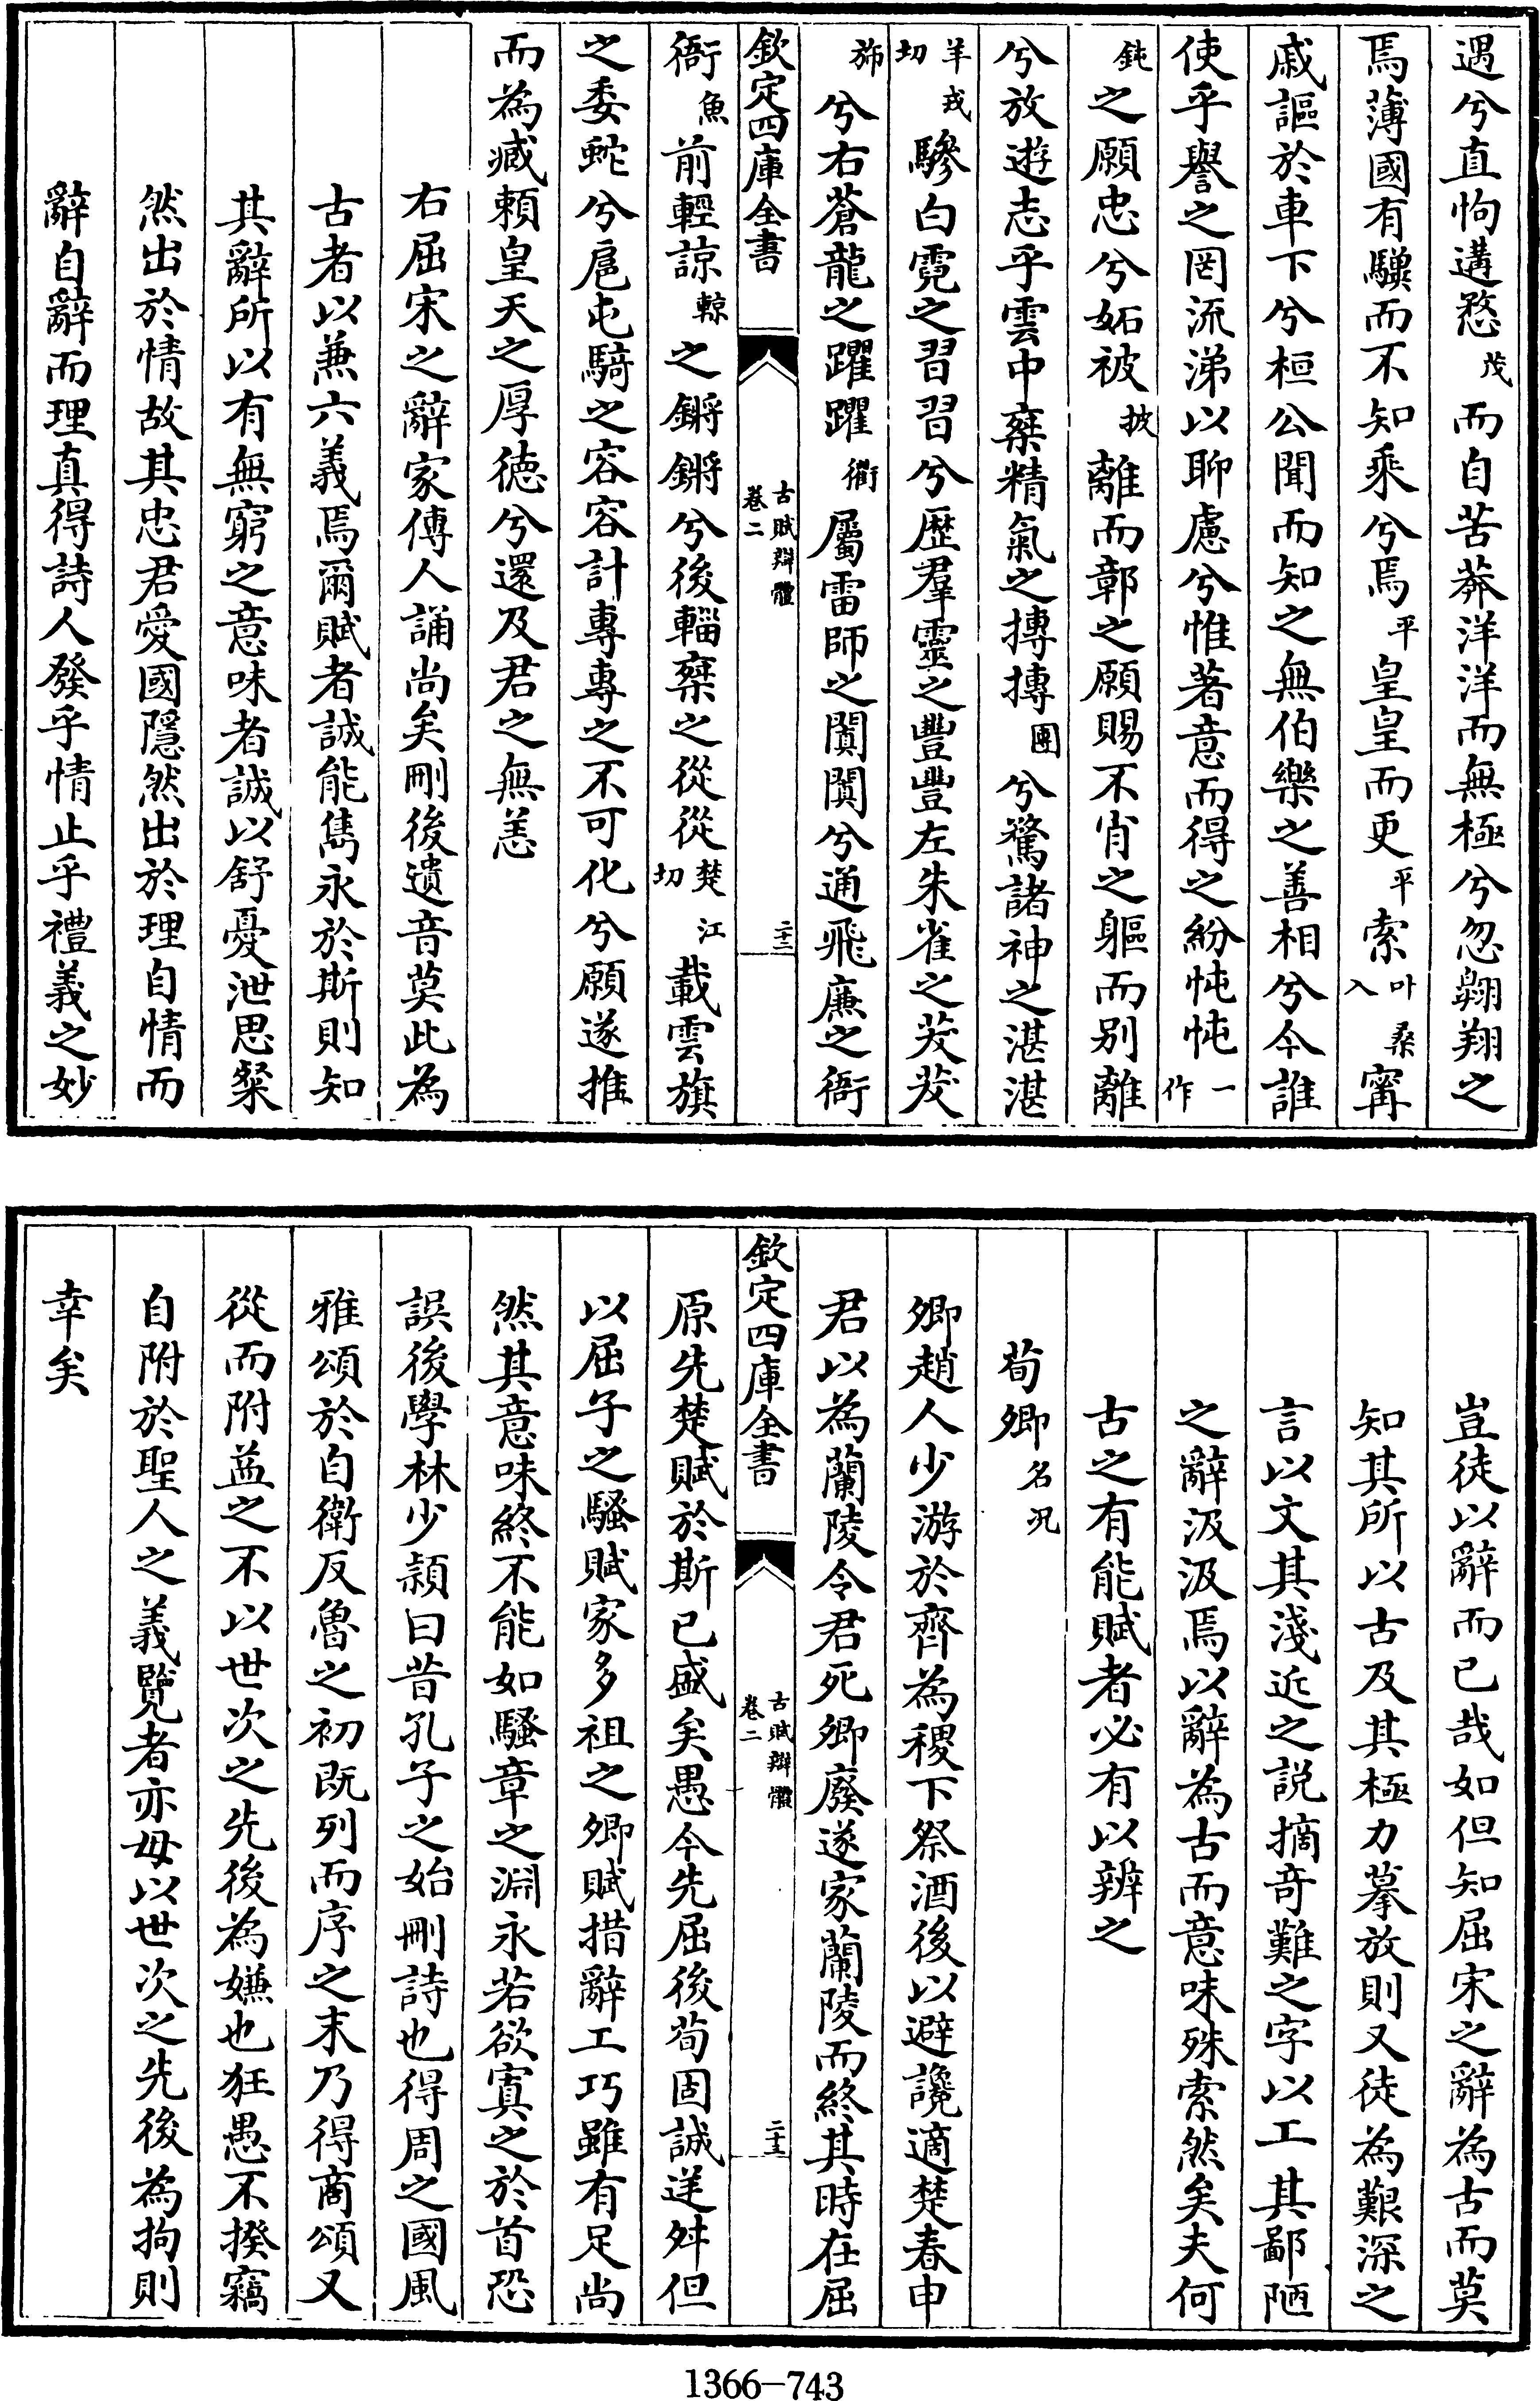 遇兮直怐遘愗茂而自苦莽洋洋而無極兮忽翺翔之
焉薄國有驥而不知乘兮焉平皇皇而更平索叶桑入甯
戚謳於車下兮桓公聞而知之無伯樂之善相兮今誰
使乎譽之罔流涕以聊慮兮惟著意而得之紛忳忳一作
鈍之願忠兮妬被披離而鄣之願賜不肖之軀而别離
兮放遊志乎雲中椉精氣之摶摶團兮騖諸神之湛湛
羊戎切驂白霓之習習兮歷羣靈之豐豐左朱雀之茇茇
斾兮右蒼龍之躍躍衢屬雷師之闐闐兮通飛廉之衙
欽定四庫全書 古賦辯體卷二 二十二
衙魚前輕諒輬之鏘鏘兮後輜椉之從從楚江切載雲旗
之委蛇兮扈屯騎之容容計專專之不可化兮願遂推
而為臧賴皇天之厚徳兮還及君之無恙
右屈宋之辭家傳人誦尚矣刪後遺音莫此為
古者以兼六義焉爾賦者誠能雋永於斯則知
其辭所以有無窮之意味者誠以舒憂泄思粲
然出於情故其忠君愛國隱然出於理自情而
辭自辭而理真得詩人發乎情止乎禮義之妙
豈徒以辭而已哉如但知屈宋之辭為古而莫
知其所以古及其極力摹放則又徒為艱深之
言以文其淺近之説摘奇難之字以工其鄙陋
之辭汲汲焉以辭為古而意味殊索然矣夫何
古之有能賦者必有以辨之
荀卿名况
卿趙人少游於齊為稷下祭酒後以避讒適楚春申
君以為蘭陵令君死卿廢遂家蘭陵而終其時在屈
欽定四庫全書 古賦辯體卷二 二十三
原先楚賦於斯已盛矣愚今先屈後荀固誠逆舛但
以屈子之騷賦家多祖之卿賦措辭工巧雖有足尚
然其意味終不能如騷章之淵永若欲寘之於首恐
誤後學林少潁曰昔孔子之始刪詩也得周之國風
雅頌於自衛反魯之初既列而序之末乃得商頌又
從而附益之不以世次之先後為嫌也狂愚不揆竊
自附於聖人之義覽者亦毋以世次之先後為拘則
幸矣
1366-743